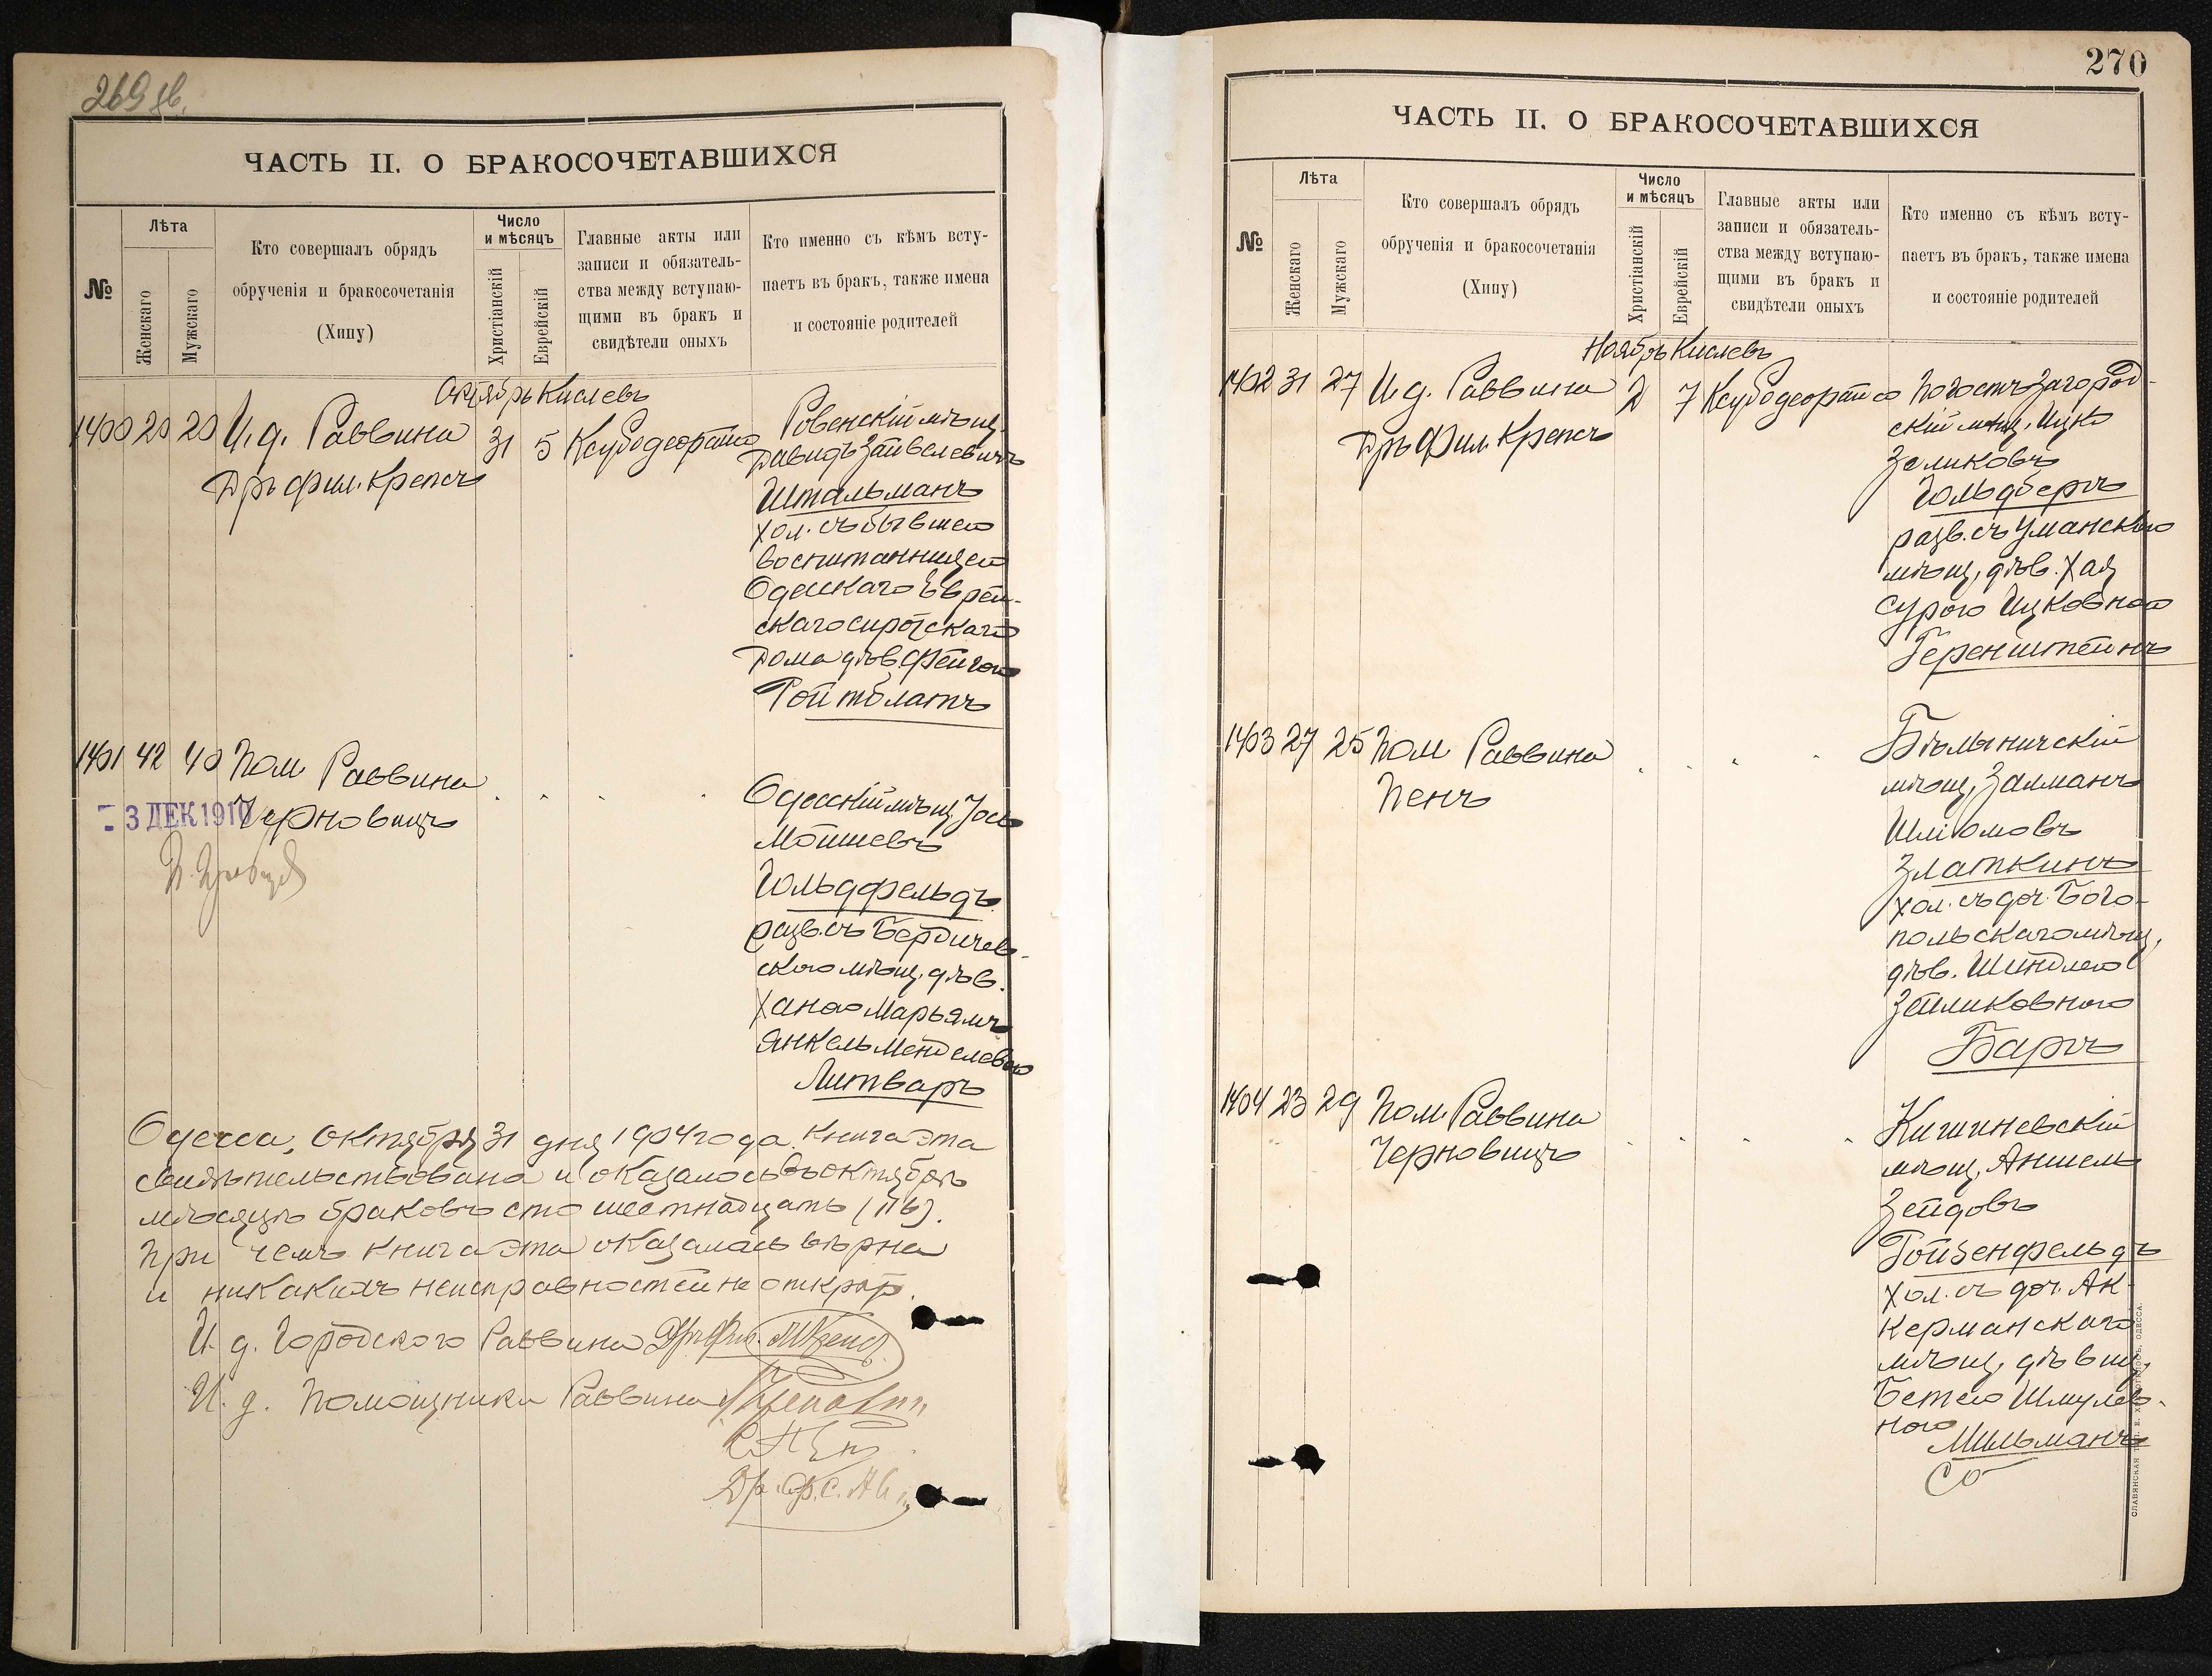 269 об.
ЧАСТЬ II. О БРАКОСОЧЕТАВШИХСЯ
№
Лѣта
Женскаго
Мужскаго
Кто совершалъ обрядъ
обрученія и бракосочетанія
(Хипу)
Число
и мѣсяцъ
Христіанскій
Еврейскій
Главные акты или
записи и обязатель-
ства между вступаю-
щими въ бракъ и
свидѣтели оныхъ
Кто именно съ кѣмъ всту-
паетъ въ бракъ, также имена
и состояніе родителей
Октябрь Кислевъ
1400 20 20 И. д. Раввина
Дръ фил. Крепсъ
31 5 Ксубодеорайсо
Ровенскій мѣщ.
Давидъ Зайвелевичъ
Штальманъ
хол. съ бывшею
воспитанницею
Одесскаго Еврей-
скаго сиротскаго
Дома дѣв. Фейгою
Ройтблатъ
1401 42 40 Пом Раввина
Черновицъ
3 ДЕК 1910
Одесскій мѣщ. Іось
Мошševъ
Гольдфельдъ
разв. съ Бердичев-
скою мѣщ. дѣв.
Ханою Марьямъ
Янкель Менделевою
Литваръ
Одесса, Октября 31 дня 1904 года. Книга эта
свидѣтельствована и оказалось въ октябрѣ
мѣсяцѣ браковъ сто шестнадцать (116).
При чемъ книга эта оказалась вѣрна
и никакихъ неисправностей не открыто.
И. д. Городского Раввина Дръ Фил.
И. д. Помощника Раввина
270
ЧАСТЬ II. О БРАКОСОЧЕТАВШИХСЯ
№
Лѣта
Женскаго
Мужскаго
Кто совершалъ обрядъ
обрученія и бракосочетанія
(Хипу)
Число
и мѣсяцъ
Христіанскій
Еврейскій
Главные акты или
записи и обязатель-
ства между вступаю-
щими въ бракъ и
свидѣтели оныхъ
Кто именно съ кѣмъ всту-
паетъ въ бракъ, также имена
и состояніе родителей
Ноябрь Кислевъ
1402 31 27 И. д. Раввина
Дръ Фил. Крепсъ
2 7 Ксубодеорайсо
Погостъ-Загород-
скій мѣщ. Ицко
Зеликовъ
Гольдбергъ
разв. съ Уманскою
мѣщ. дѣв. Хая
Сурою Ицковною
Геренштейнъ
1403 27 25 Пом Раввина
Пенъ
Бѣлыничскій
мѣщ. Залманъ
Шліомовъ
Златкинъ
хол. съ доч. Бого-
польскаго мѣщ.
дѣв. Шейндлею
Зейликовною
Баргъ
1404 23 29 Пом. Раввина
Черновицъ
Кишиневскій
мѣщ. Аншель
Зейдовъ
Ройзенфельдъ
хол. съ доч. Ак-
керманскаго
мѣщ. дѣвиц.
Бетею Шмулев-
ною
Мильманъ
СЛАВЯНСКАЯ ТИП. Е. ХРИСОГЕЛОСЪ, ОДЕССА.